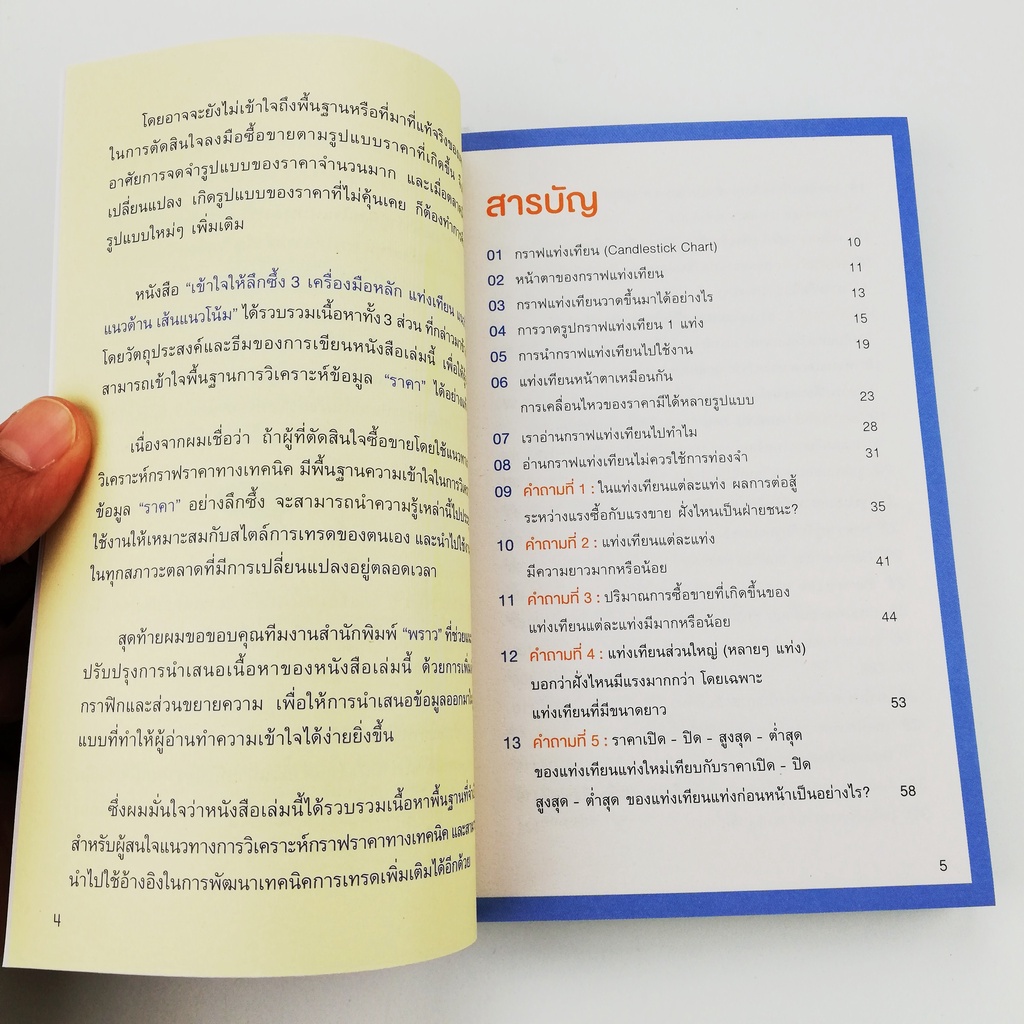 โดยอาจจะยังไม่เข้าใจถึงพื้นฐานหรือที่มาที่แท้จริงของ
ในการตัดสินใจลงมือซื้อขายตามรูปแบบราคาที่เกิดขึ้น
อาศัยการจดจำรูปแบบของราคาจำนวนมาก และเมื่อตลาด
เปลี่ยนแปลง เกิดรูปแบบของราคาที่ไม่คุ้นเคย ก็ต้องทำการ
รูปแบบใหม่ๆ เพิ่มเติม
หนังสือ “เข้าใจให้ลึกซึ้ง 3 เครื่องมือหลัก แท่งเทียน
แนวต้าน เส้นแนวโน้ม” ได้รวบรวมเนื้อหาทั้ง 3 ส่วน ที่กล่าวมา
โดยวัตถุประสงค์และธีมของการเขียนหนังสือเล่มนี้ เพื่อให้
สามารถเข้าใจพื้นฐานการวิเคราะห์ข้อมูล “ราคา” ได้อย่าง
เนื่องจากผมเชื่อว่า ถ้าผู้ที่ตัดสินใจซื้อขายโดยใช้แนวทาง
วิเคราะห์กราฟราคาทางเทคนิค มีพื้นฐานความเข้าใจในการ
ข้อมูล “ราคา” อย่างลึกซึ้ง จะสามารถนำความรู้เหล่านี้ไป
ใช้งานให้เหมาะสมกับสไตล์การเทรดของตนเอง และนำไปใช้
ในทุกสภาวะตลาดที่มีการเปลี่ยนแปลงอยู่ตลอดเวลา
สุดท้ายผมขอขอบคุณทีมงานสำนักพิมพ์ “พราว” ที่ช่วย
ปรับปรุงการนำเสนอเนื้อหาของหนังสือเล่มนี้ ด้วยการเพิ่ม
กราฟิกและส่วนขยายความ เพื่อให้การนำเสนอข้อมูลออกมา
แบบที่ทำให้ผู้อ่านทำความเข้าใจได้ง่ายยิ่งขึ้น
ซึ่งผมมั่นใจว่าหนังสือเล่มนี้ได้รวบรวมเนื้อหาพื้นฐานที่
สำหรับผู้สนใจแนวทางการวิเคราะห์กราฟราคาทางเทคนิค
นำไปใช้อ้างอิงในการพัฒนาเทคนิคการเทรดเพิ่มเติมได้อีกด้วย
4
สารบัญ
01 กราฟแท่งเทียน (Candlestick Chart) 10
02 หน้าตาของกราฟแท่งเทียน 11
03 กราฟแท่งเทียนวาดขึ้นมาได้อย่างไร 13
04 การวาดรูปกราฟแท่งเทียน 1 แท่ง 15
05 การนำกราฟแท่งเทียนไปใช้งาน 19
06 แท่งเทียนหน้าตาเหมือนกัน
การเคลื่อนไหวของราคามีได้หลายรูปแบบ 23
07 เราอ่านกราฟแท่งเทียนไปทำไม 28
08 อ่านกราฟแท่งเทียนไม่ควรใช้การท่องจำ 31
09 คำถามที่ 1 : ในแท่งเทียนแต่ละแท่ง ผลการต่อสู้
ระหว่างแรงซื้อกับแรงขาย ฝั่งไหนเป็นฝ่ายชนะ? 35
10 คำถามที่ 2 : แท่งเทียนแต่ละแท่ง
มีความยาวมากหรือน้อย 41
11 คำถามที่ 3 : ปริมาณการซื้อขายที่เกิดขึ้นของ
แท่งเทียนแต่ละแท่งมีมากหรือน้อย 44
12 คำถามที่ 4 : แท่งเทียนส่วนใหญ่ (หลายๆ แท่ง)
บอกว่าฝั่งไหนมีแรงมากกว่า โดยเฉพาะ
แท่งเทียนที่มีขนาดยาว 53
13 คำถามที่ 5 : ราคาเปิด - ปิด - สูงสุด - ต่ำสุด
ของแท่งเทียนแท่งใหม่เทียบกับราคาเปิด - ปิด
สูงสุด - ต่ำสุด ของแท่งเทียนแท่งก่อนหน้าเป็นอย่างไร? 58
5